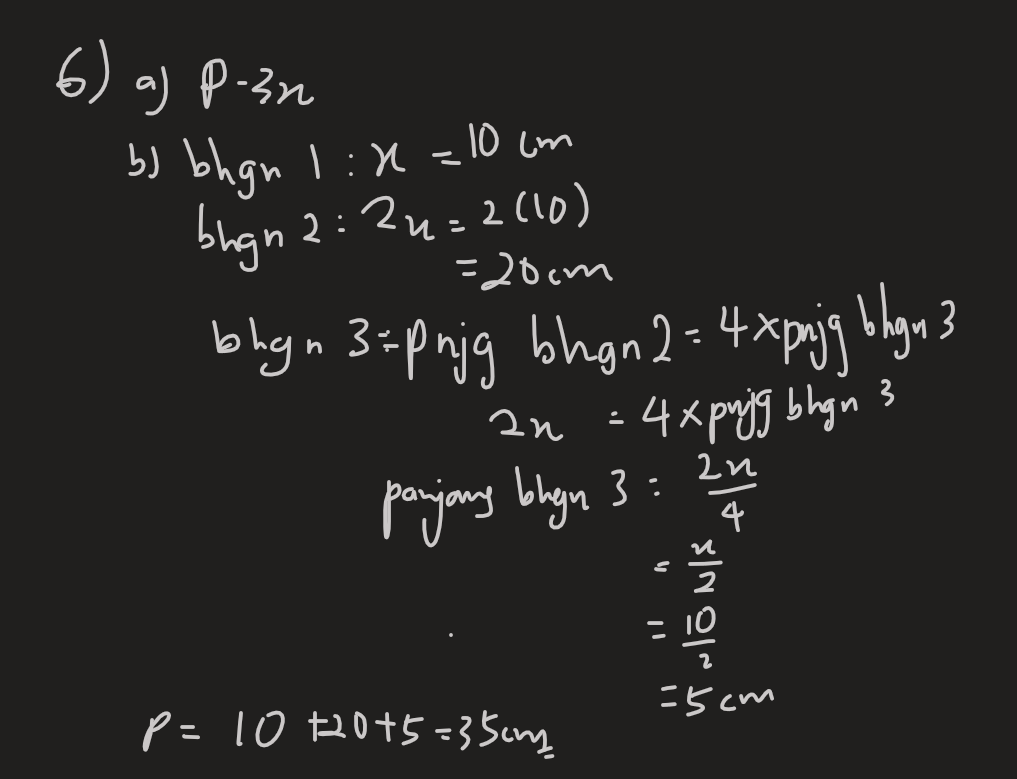 6) a) P-3x
b) bhgn 1 : x = 10 cm
bhgn 2 : 2x = 2 (10)
= 20cm
bhgn 3 = pnjg bhgn 2 = 4 x pnjg bhgn 3
2x = 4 x pnjg bhgn 3
panjang bhgn 3 = 2x/4
= x/2
= 10/2
= 5 cm
P = 10 + 20 + 5 = 35cm